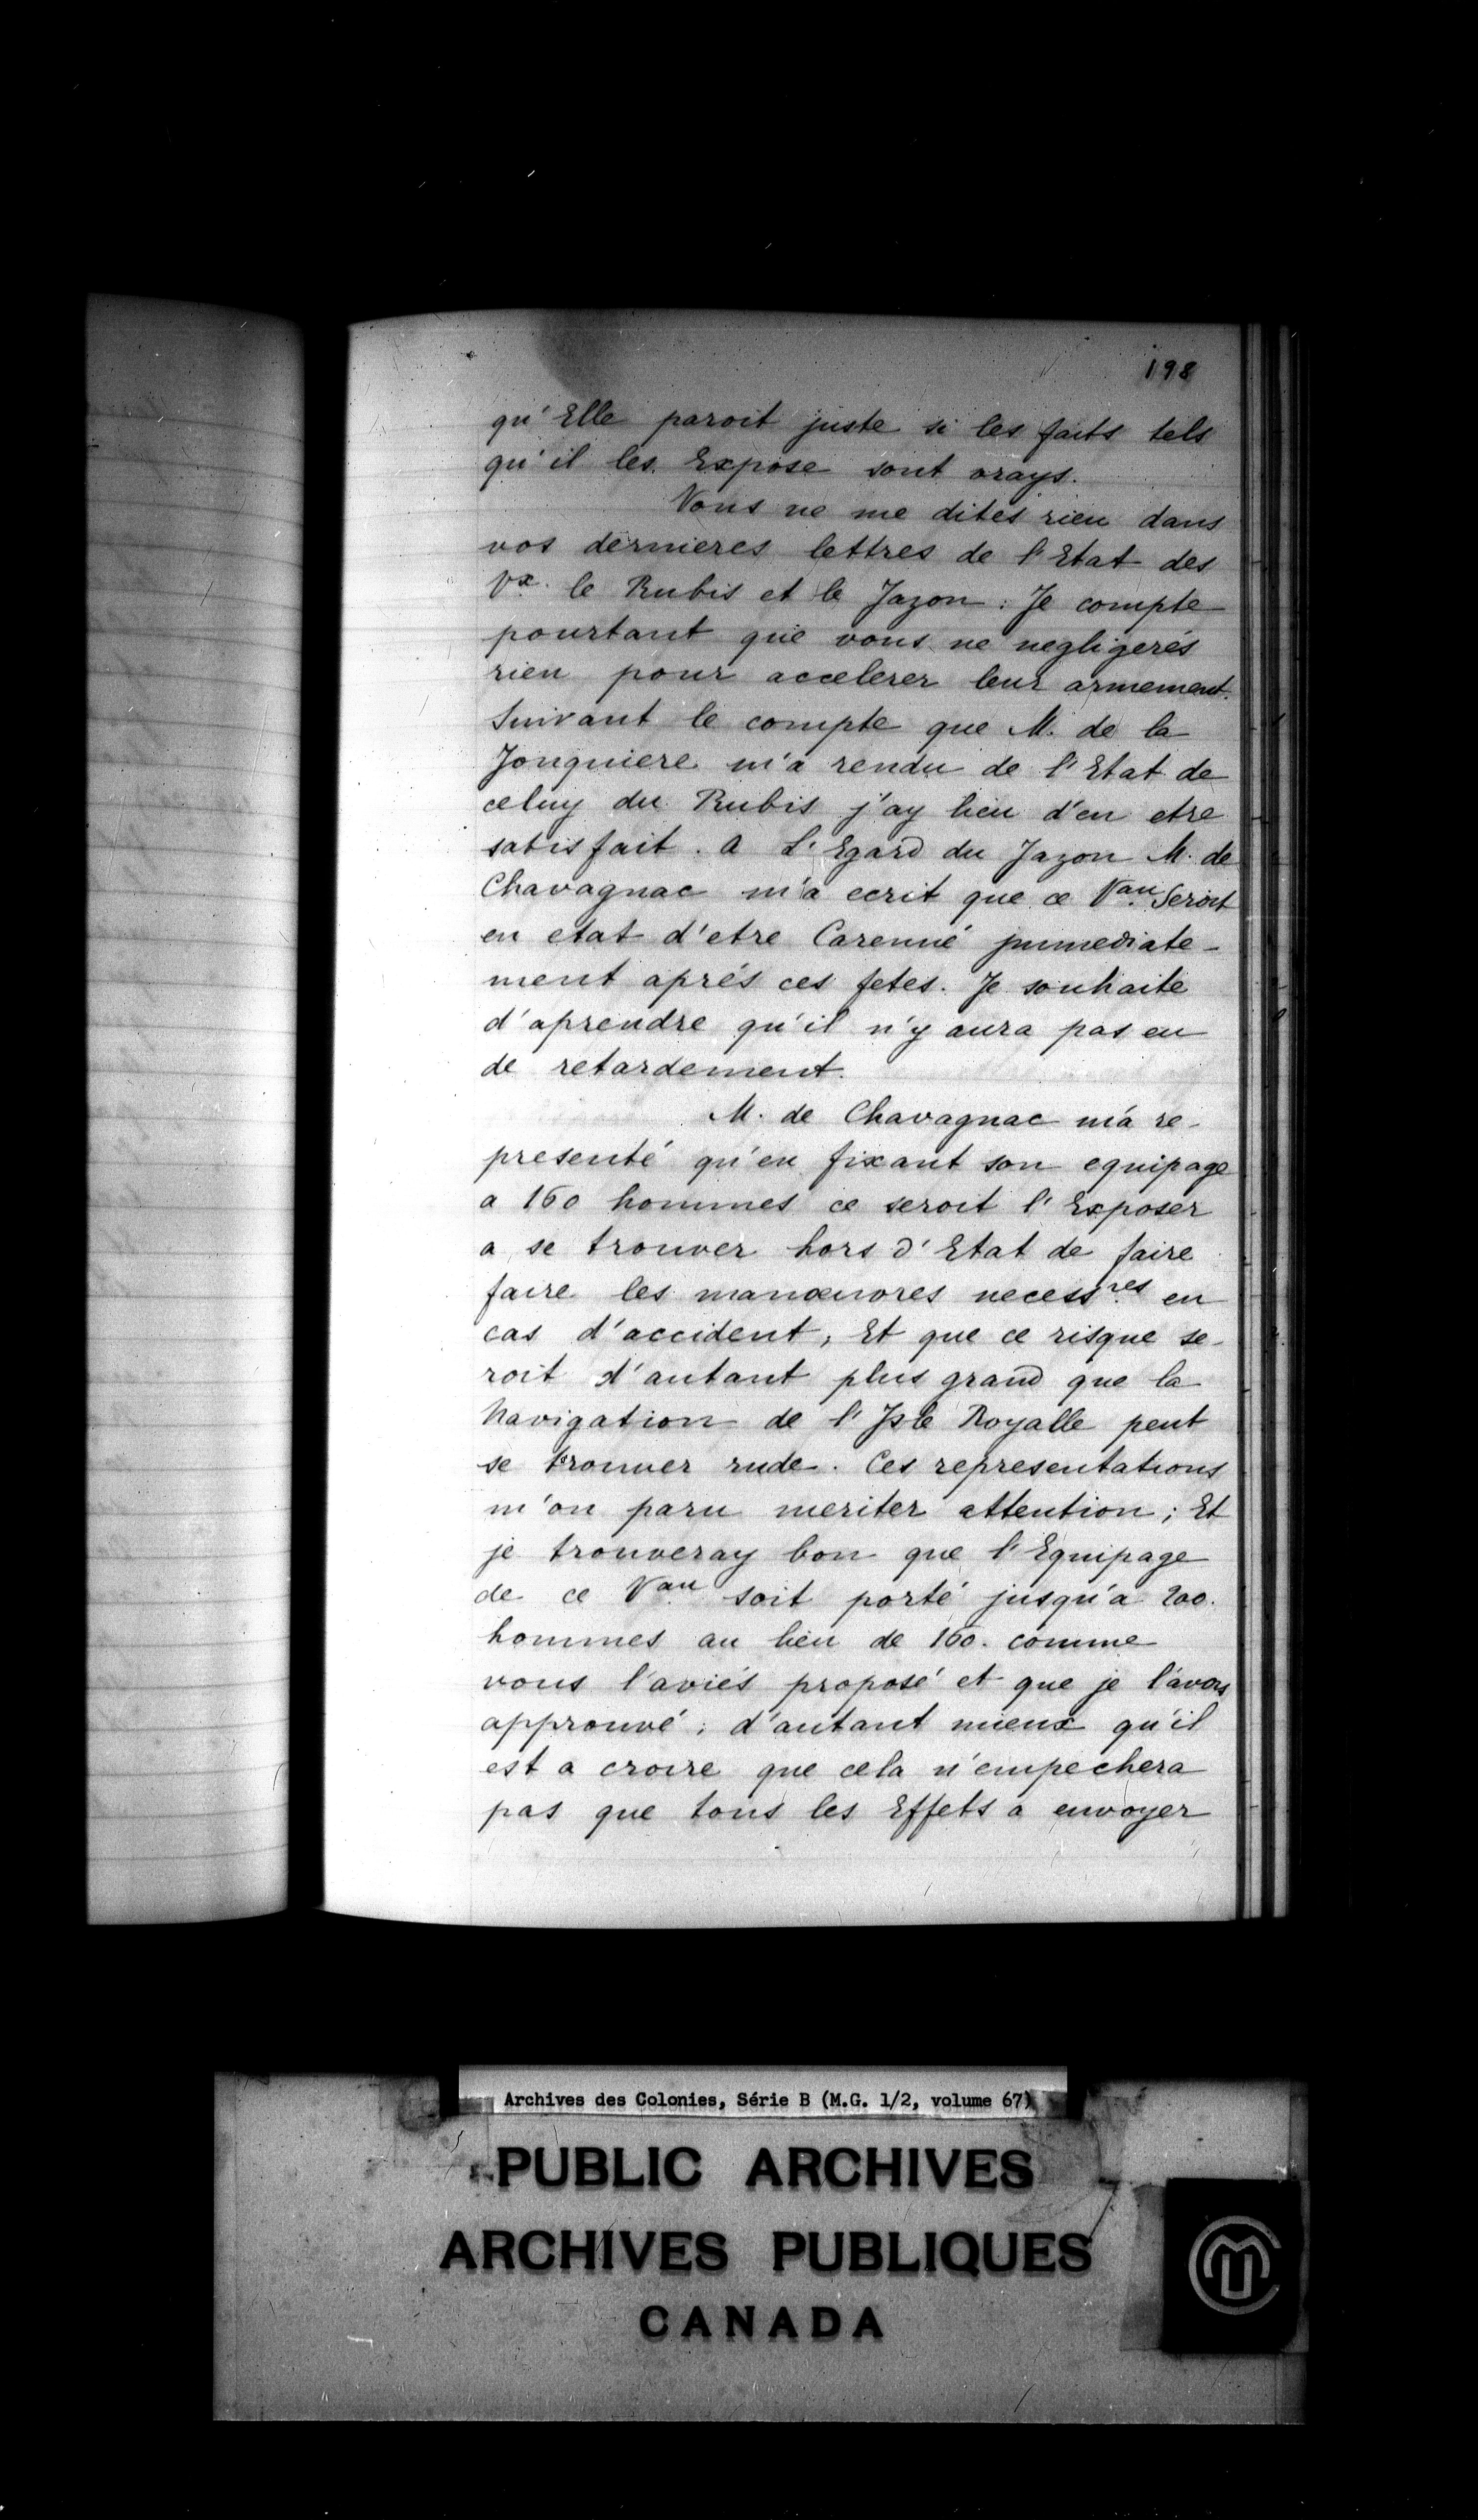 198
qu'Elle paroit juste si les faits tels
qu'il les Expose sont vrays.
Vous ne me dites rien dans
vos dernieres lettres de l'Etat des
Vx. le Rubis et le Jazon : Je compte
pourtant que vous ne negligerés
rien pour accelerer leur armement.
Suivant le compte que M. de la
Jonquiere m'a rendu de l'Etat de
celuy du Rubis j'ay lieu d'en etre
satisfait. a L'Egard du Jazon M. de
Chavagnac m'a ecrit que ce Vau. Seroit
en etat d'etre Carenné jmmediate-
ment aprés ces fetes. Je souhaite
d'aprendre qu'il n'y aura pas eu
de retardement.
M. de Chavagnac m'a re-
presenté qu'en fixant son equipage
a 160 hommes ce seroit l'Exposer
a se trouver hors d'Etat de faire
faire les manœuvres necessres en
cas d'accident, Et que ce risque se-
roit d'autant plus grand que la
Navigation de l'Isle Royalle peut
se trouver rude. Ces representations
m'on paru meriter attention ; Et
je trouveray bon que l'Equipage
de ce Vau. soit porté jusqu'a 200.
hommes au lieu de 160. comme
vous l'aviés proposé et que je l'avois
approuvé ; d'autant mieux qu'il
est a croire que cela n'empechera
pas que tous les Effets a envoyer
Archives des Colonies, Série B (M.G. 1/2, volume 67)
PUBLIC ARCHIVES
ARCHIVES PUBLIQUES
CANADA